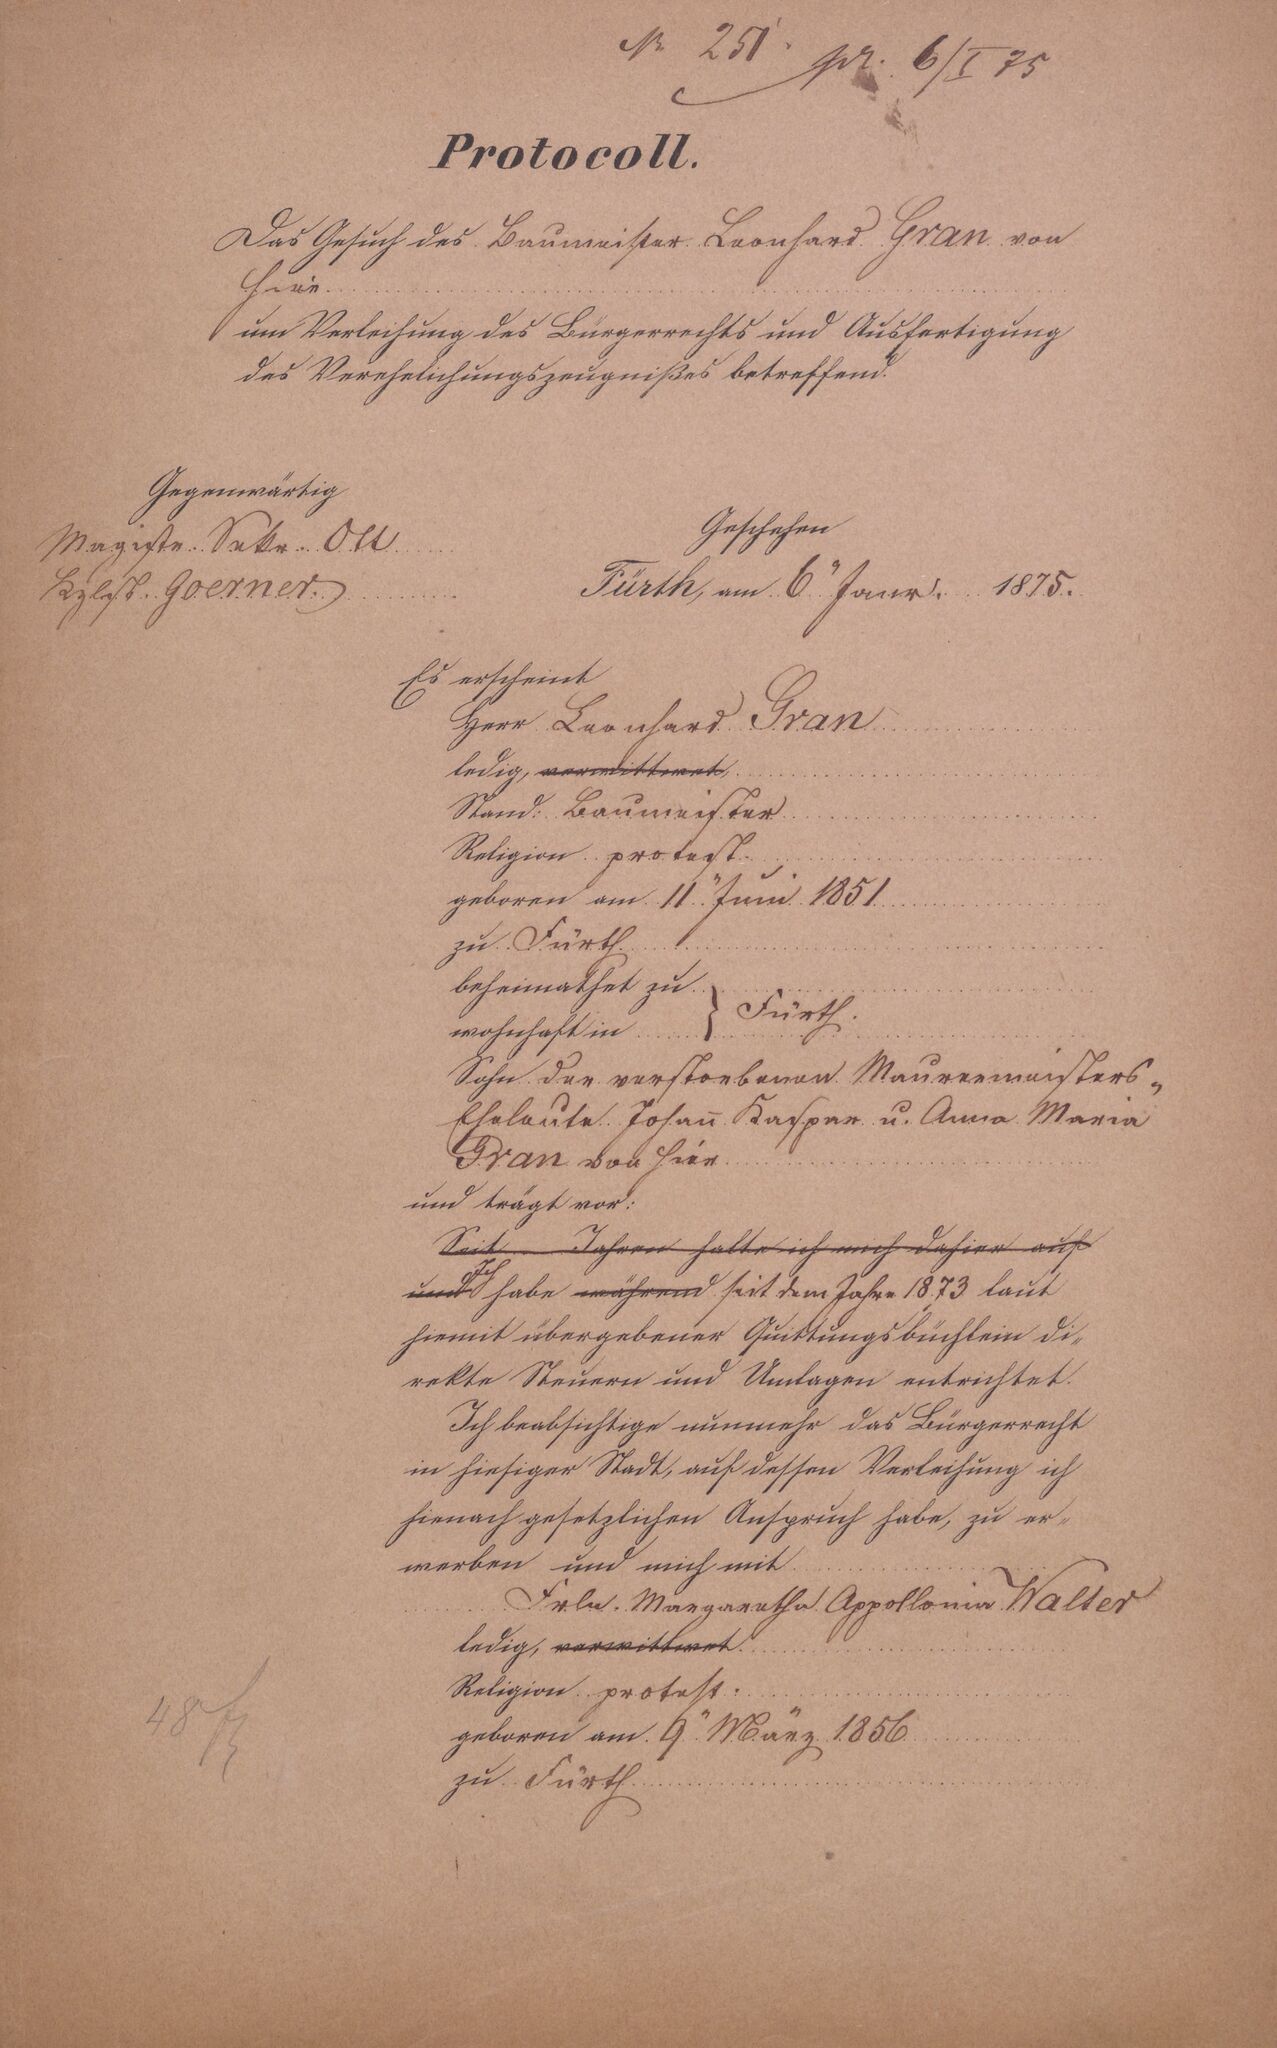 № 251. pr. 6/I 75
Protocoll.
Das Gesuch des Baumeister Leonhard Gran von
hier
um Verleihung des Bürgerrechts und Ausfertigung
des Verehelichungszeugnißes betreffend.
Gegenwärtig
Magistr. Sekr. Ott
Kzlst. Goerner.
Geschehen
Fürth, am 6" Janr. 1875.
Es erscheint
Herr Leonhard Gran
ledig, verwittwet,
Stand: Baumeister
Religion protest.
geboren am 11" Juni 1851
zu Fürth
beheimathet zu
wohnhaft in } Fürth.
Sohn der verstorbenen Maurermeisters-
Eheleute Johann Kaspar u. Anna Maria
Gran von hier
und trägt vor:
Seit Jahren halte ich mich dahier auf
und Ich habe während seit dem Jahre 1873 laut
hiemit übergebener Quittungsbüchlein di-
rekte Steuern und Umlagen entrichtet.
Ich beabsichtige nunmehr das Bürgerrecht
in hiesiger Stadt, auf dessen Verleihung ich
hienach gesetzlichen Anspruch habe, zu er-
werben und mich mit
Frln. Margaretha Appollonia Walter
ledig, verwittwet
Religion protest.
geboren am 9" März 1856
zu Fürth
48